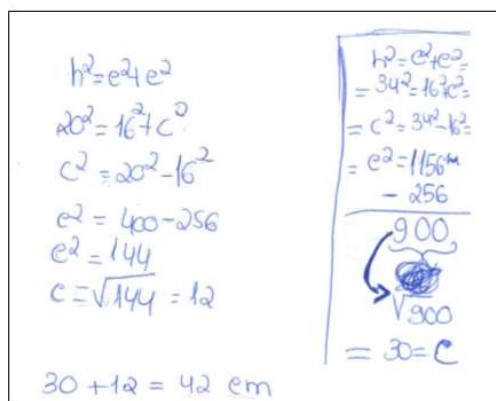 h²=c²+c²
20²=16²+c²
c²=20²-16²
c²=400-256
c²=144
c=√144=12
30+12=42 cm
h²=c²+c²=
=34²=16²+c²=
=c²=34²-16²=
=c²=1156
-256
900
√900
=30=c